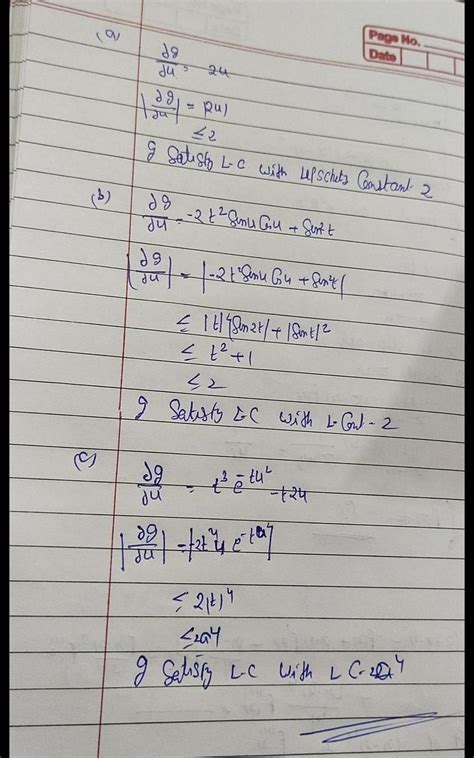 Page No.
Date
(a)
∂g/∂u = 2u
|∂g/∂u| = |2u|
≤ 2
g Satisfy L-C with Lipschitz Constant 2
(b)
∂g/∂u = -2t² Sinu Cosu + Sin²t
|∂g/∂u| = |-2t² Sinu Cosu + Sin²t|
≤ |t|² |Sin2t| + |Sint|²
≤ t² + 1
≤ 2
g Satisfy L-C with L-Cont - 2
(c)
∂g/∂u = t³ e^-tu² - t2u
|∂g/∂u| = |-2t⁴u e^-tu²|
≤ 2|t|⁴
≤ 2a⁴
g Satisfy L-C with L C-2a⁴